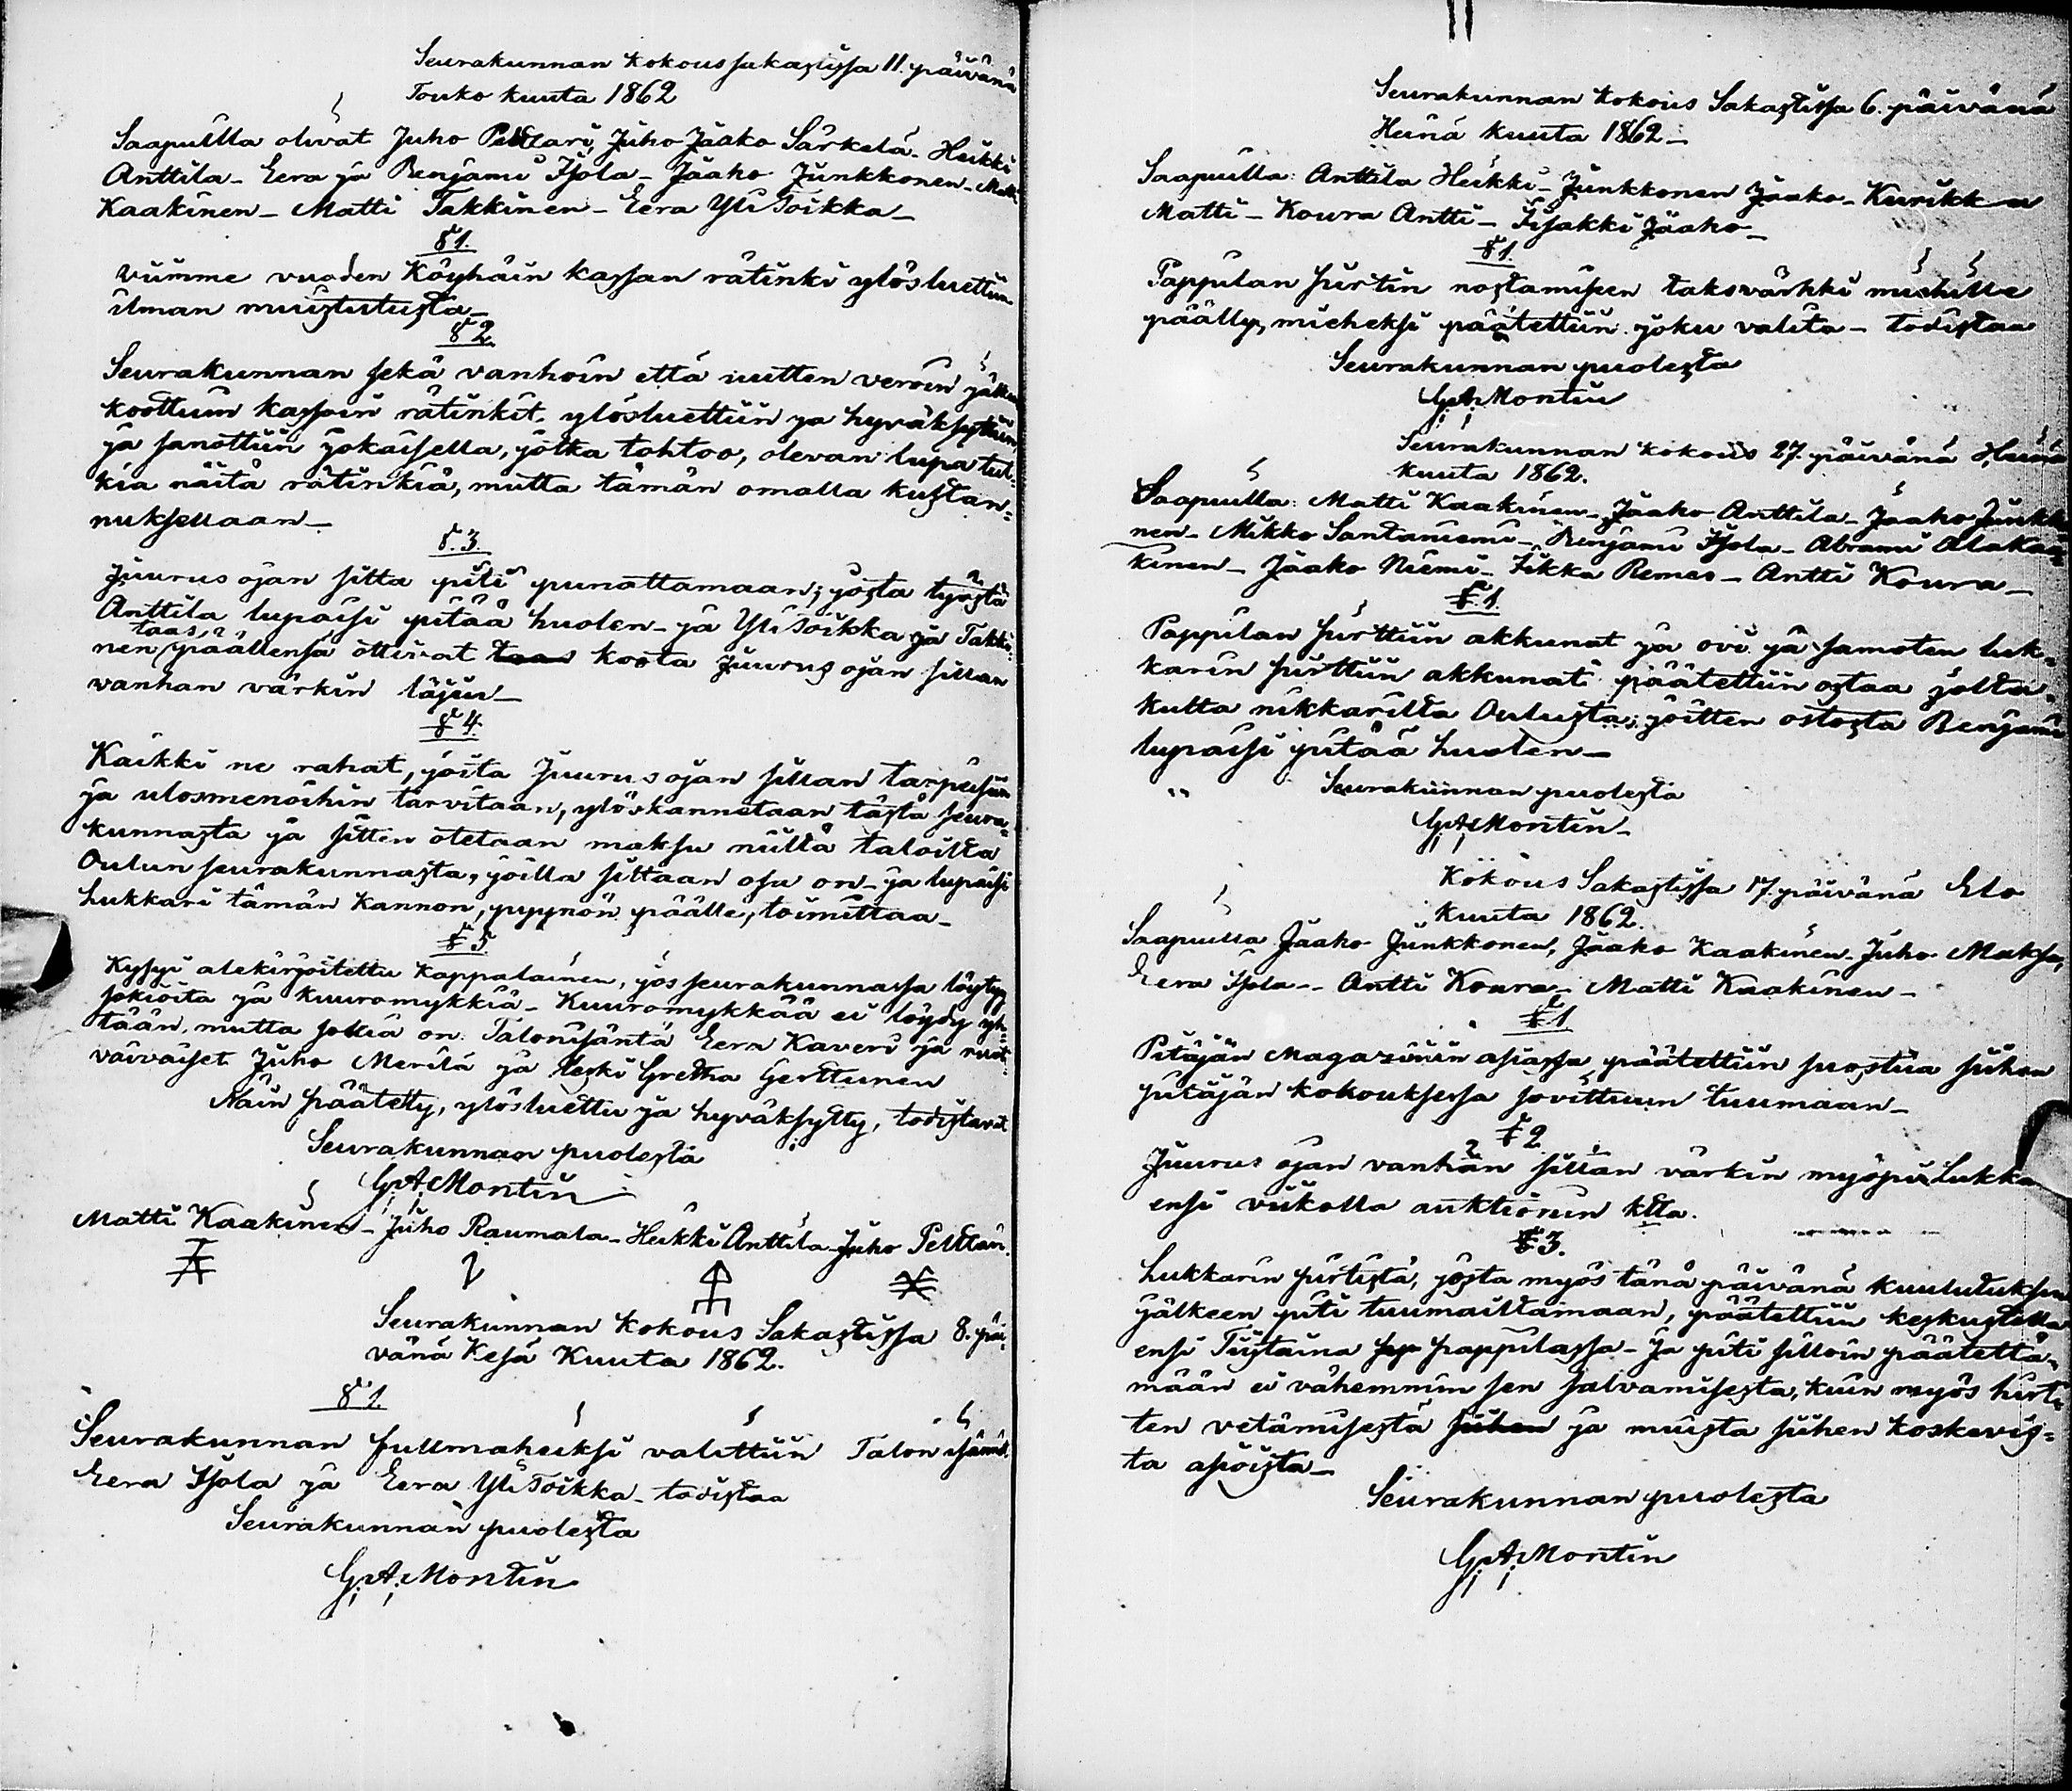 Seurakunnan kokous sakastissa 11. päivänä
Touko kuuta 1862
Saapuilla olivat Juho Pelttari, Juho Jaako Särkelä - Heikki
Anttila - Eera ja Benjami Isola - Jaako Junkkonen - Matti
Kaakinen - Matti Takkinen - Eera YliToikka -
§ 1.
viimme vuoden Köyhäin kassan rätinki ylösluettiin
ilman muistutusta -
§ 2.
Seurakunnan sekä vanhoin että uutten veroin jälkeen
koottuin kassoin rätinkit ylösluettiin ja hyväksyttiin,
ja sanottiin jokaisella, jotka tohtoo, olevan lupa tut-
kia näitä rätinkiä, mutta tämän omalla kustan-
nuksellaan -
§. 3.
Juurus ojan silta piti punottamaan; josta työstä
Anttila lupaisi pitää huolen - ja YliToikka ja Takki-
nen taas päällensä ottivat taas koota Juurus ojan sillan
vanhan värkin läjiin -
§ 4.
Kaikki ne rahat, joita Juurus ojan sillan tarpeisiin
ja ulosmenoihin tarvitaan, ylöskannetaan tästä seura-
kunnasta ja sitten otetaan maksu niiltä taloilta
Oulun seurakunnasta, joilla siltaan osa on - ja lupaisi
Lukkari tämän kannon, pyynön päälle, toimittaa -
§ 5.
Kysyi alekirjoitettu kappalainen, jos seurakunnassa löytyy
sokioita ja kuuromykkiä - Kuuromykkää ei löydy yh-
tään, mutta sokia on Talonisäntä Eera Kaveri ja ruot-
vaivaiset Juho Merilä ja leski Gretha Gerttunen
Näin päätetty, ylösluettu ja hyväksytty, todistavat
Seurakunnan puolesta
G. A. Montin
Matti Kaakinen - Juho Raumala - Heikki Anttila - Juho Pelttari.
Seurakunnan kokous Sakastissa 8. päi-
vänä Kesä Kuuta 1862.
§ 1.
Seurakunnan fullmaheiksi valittiin Talon isännät
Eera Isola ja Eera YliToikka - todistaa
Seurakunnan puolesta
G. A. Montin
Seurakunnan kokous Sakastissa 6. päivänä
Heinä kuuta 1862 -
Saapuilla: Anttila Heikki - Junkkonen Jaako - Kurikka
Matti - Koura Antti - Iisakki Jaako -
§ 1.
Pappilan pirtin nostamiseen taksvärkki miehille
päälly, mieheksi päätettiin joku valita - todistaa
Seurakunnan puolesta
G. A. Montin
Seurakunnan kokous 27. päivänä Heinä
kuuta 1862.
Saapuilla: Matti Kaakinen - Jaako Anttila - Jaako Junkko-
nen - Mikko Santaniemi - Benjami Isola - Abrami Alakaa-
kinen - Jaako Niemi - Iikka Remes - Antti Koura -
§ 1.
Pappilan pirttiin akkunat ja ovi ja samoten luk-
karin pirttiin akkunat päätettiin ostaa jolta-
kulta nikkarilta Oulusta; joitten ostosta Benjami
lupaisi pitää huolen -
Seurakunnan puolesta
G. A. Montin -
Kokous Sakastissa 17. päivänä Elo
kuuta 1862.
Saapuilla Jaako Junkkonen, Jaako Kaakinen - Juho Maksa,
Eera Isola - Antti Koura - Matti Kaakinen -
§ 1
Pitäjän Magasiinin asiassa päätettiin suostua siihen
pitäjän kokouksessa sovittuun tuumaan -
§ 2.
Juurus ojan vanhan sillan värkin myöpi Lukkari
ensi viikolla auktionin ktta.
§ 3.
Lukkarin pirtistä, josta myös tänä päivänä kuulutuksen
jälkeen piti tuumailtamaan, päätettiin keskustella
ensi Tiistaina pap pappilassa - Ja piti silloin päätettä-
mään ei vähemmin sen salvamisesta, kuin myös hirt-
ten vetämisestä siihen ja muista siihen koskevis-
ta asioista -
Seurakunnan puolesta
G. A. Montin